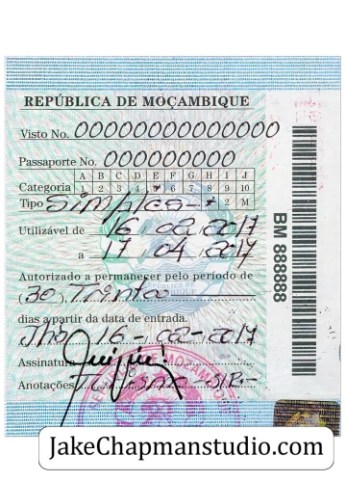 REPÚBLICA DE MOÇAMBIQUE
Visto No. 00000000000000
Passaporte No. 000000000
A B C D E F G H I J
Categoria 1 2 3 4 5 6 7 8 9 10
Tipo Simples 2 M
Utilizável de 16 02 2017
a 17 04 2017
Autorizado a permanecer pelo período de
(30) Trinta
dias a partir da data de entrada.
16-02-2017
Assinatura
Anotações
BM 888888
JakeChapmanstudio.com